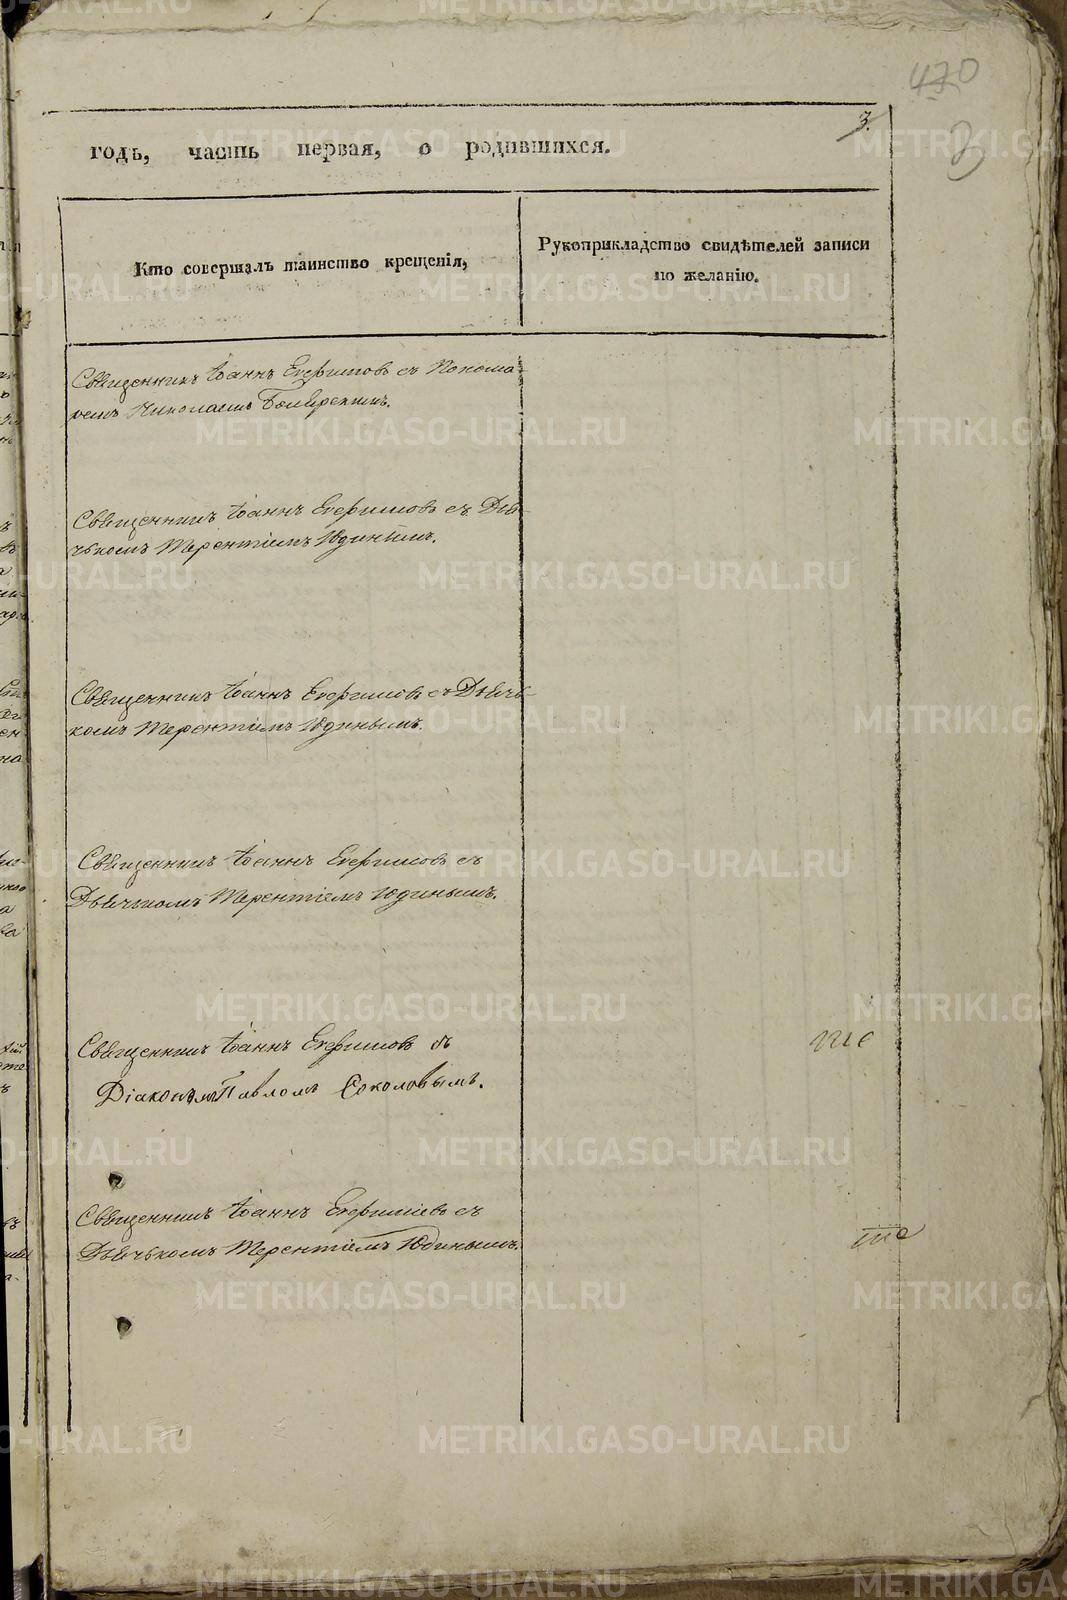 470
3.
3
годъ, часть первая, о родившихся.
Кто совершалъ таинство крещенія,
Рукоприкладство свидѣтелей записи
по желанію.
Священникъ Іоаннъ Евфимовъ съ Понома-
ремъ Николаемъ
Священникъ Іоаннъ Евфимовъ съ Дья-
чькомъ Терентіемъ Юдинымъ.
Священникъ Іоаннъ Евфимовъ съ Дьячь-
комъ Терентіемъ Юдинымъ.
Священникъ Іоаннъ Евфимовъ съ
Дьячькомъ Терентіемъ Юдинымъ.
Священникъ Іоаннъ Евфимовъ съ
Діакономъ Павломъ Соколовымъ.
Священникъ Іоаннъ Евфимовъ съ
Дьячькомъ Терентіемъ Юдинымъ.
METRIKI.GASO-URAL.RU